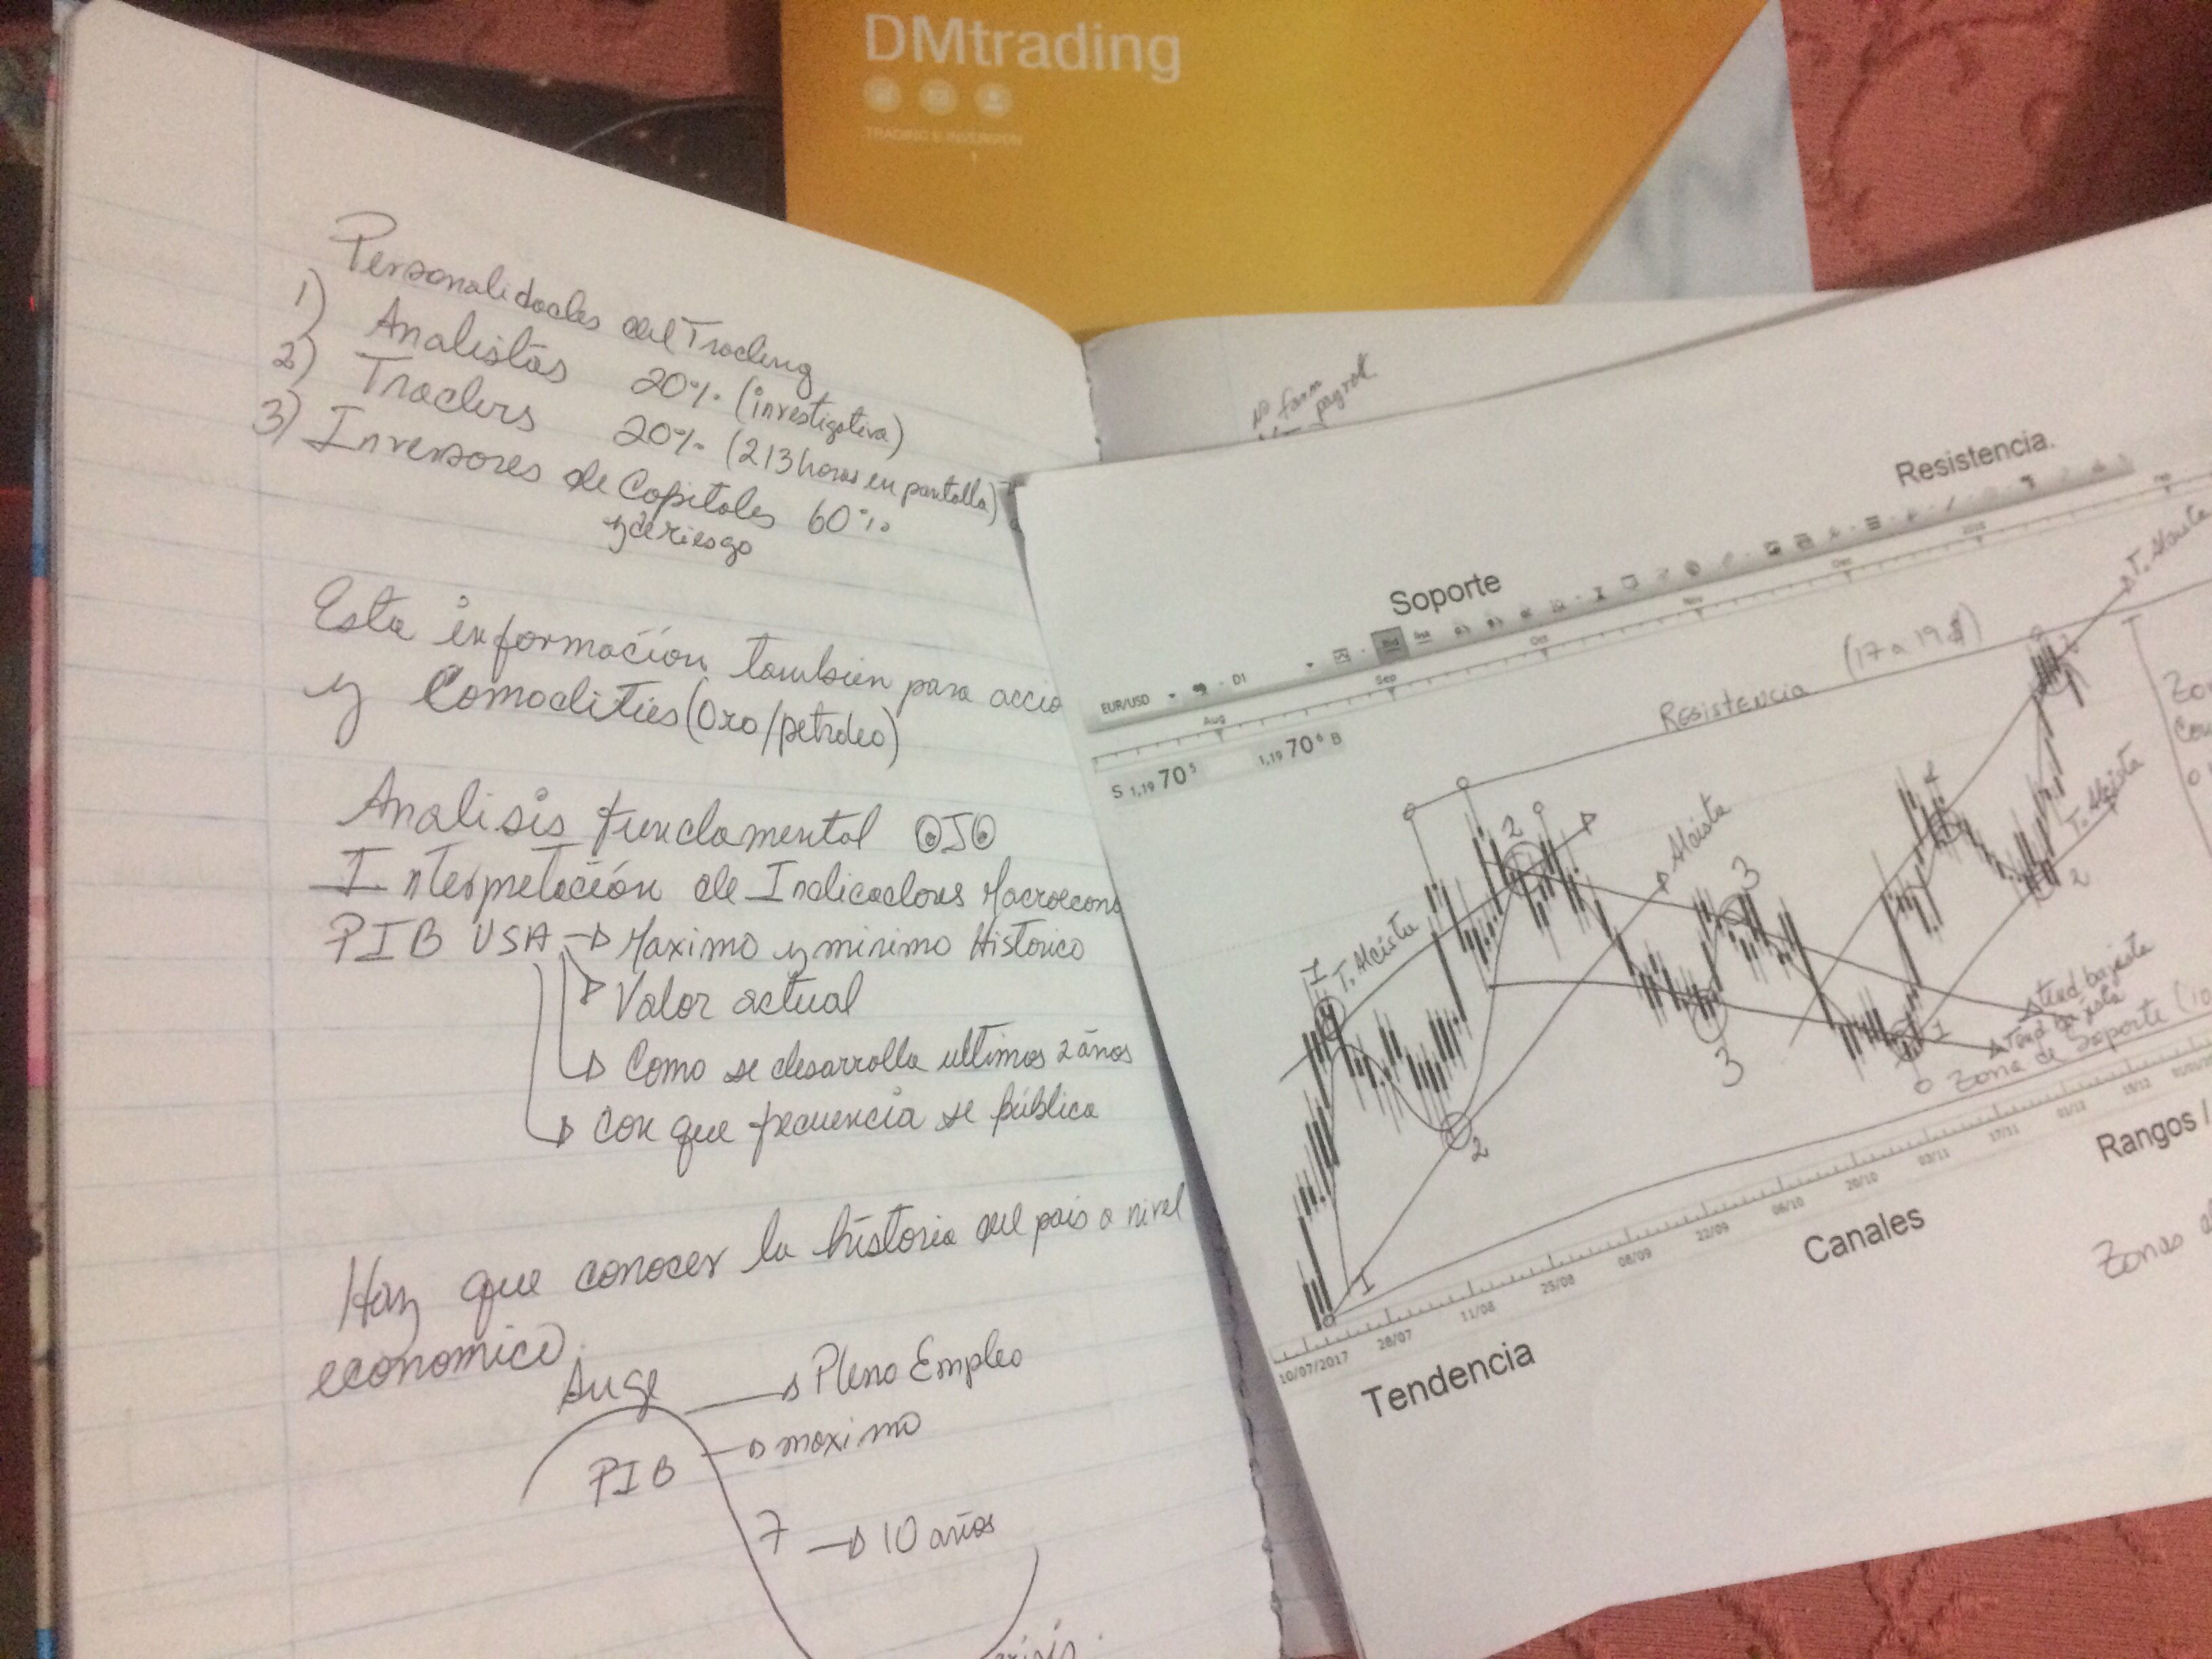 DMtrading
TRADING E INVERSION
Personalidades del Trading
1) Analistas 20% (investigativa)
2) Traders 20% (213 horas en pantalla)
3) Inversores de Capitales 60%
y de riesgo
Esta información tambien para accio
y Comodities (Oro/petroleo)
Analisis fundamental OJO
Interpretación de Indicadores Macroecono
PIB USA → Maximo y minimo Historico
→ Valor actual
→ Como se desarrolla ultimos 2 años
→ Con que frecuencia se pública
Hay que conocer la historia del pais a nivel
economico.
Auge → Pleno Empleo
PIB → maximo
7 → 10 años
Soporte
Resistencia.
EUR/USD D1
Aug Sep Oct Nov Dec 2018
S 1,19 70⁵ 1,19 70⁶ B
Resistencia (17 a 19$)
T. Alcista
1 T. Alcista
2
Alcista
3
T. Alcista
2
2
3
1
Tend bajista
Tend bajista
Zona de Soporte (10
1
10/07/2017 28/07 11/08 25/08 08/09 22/09 06/10 20/10 03/11 17/11 01/12 15/12
Tendencia
Canales
Rangos /
Zonas